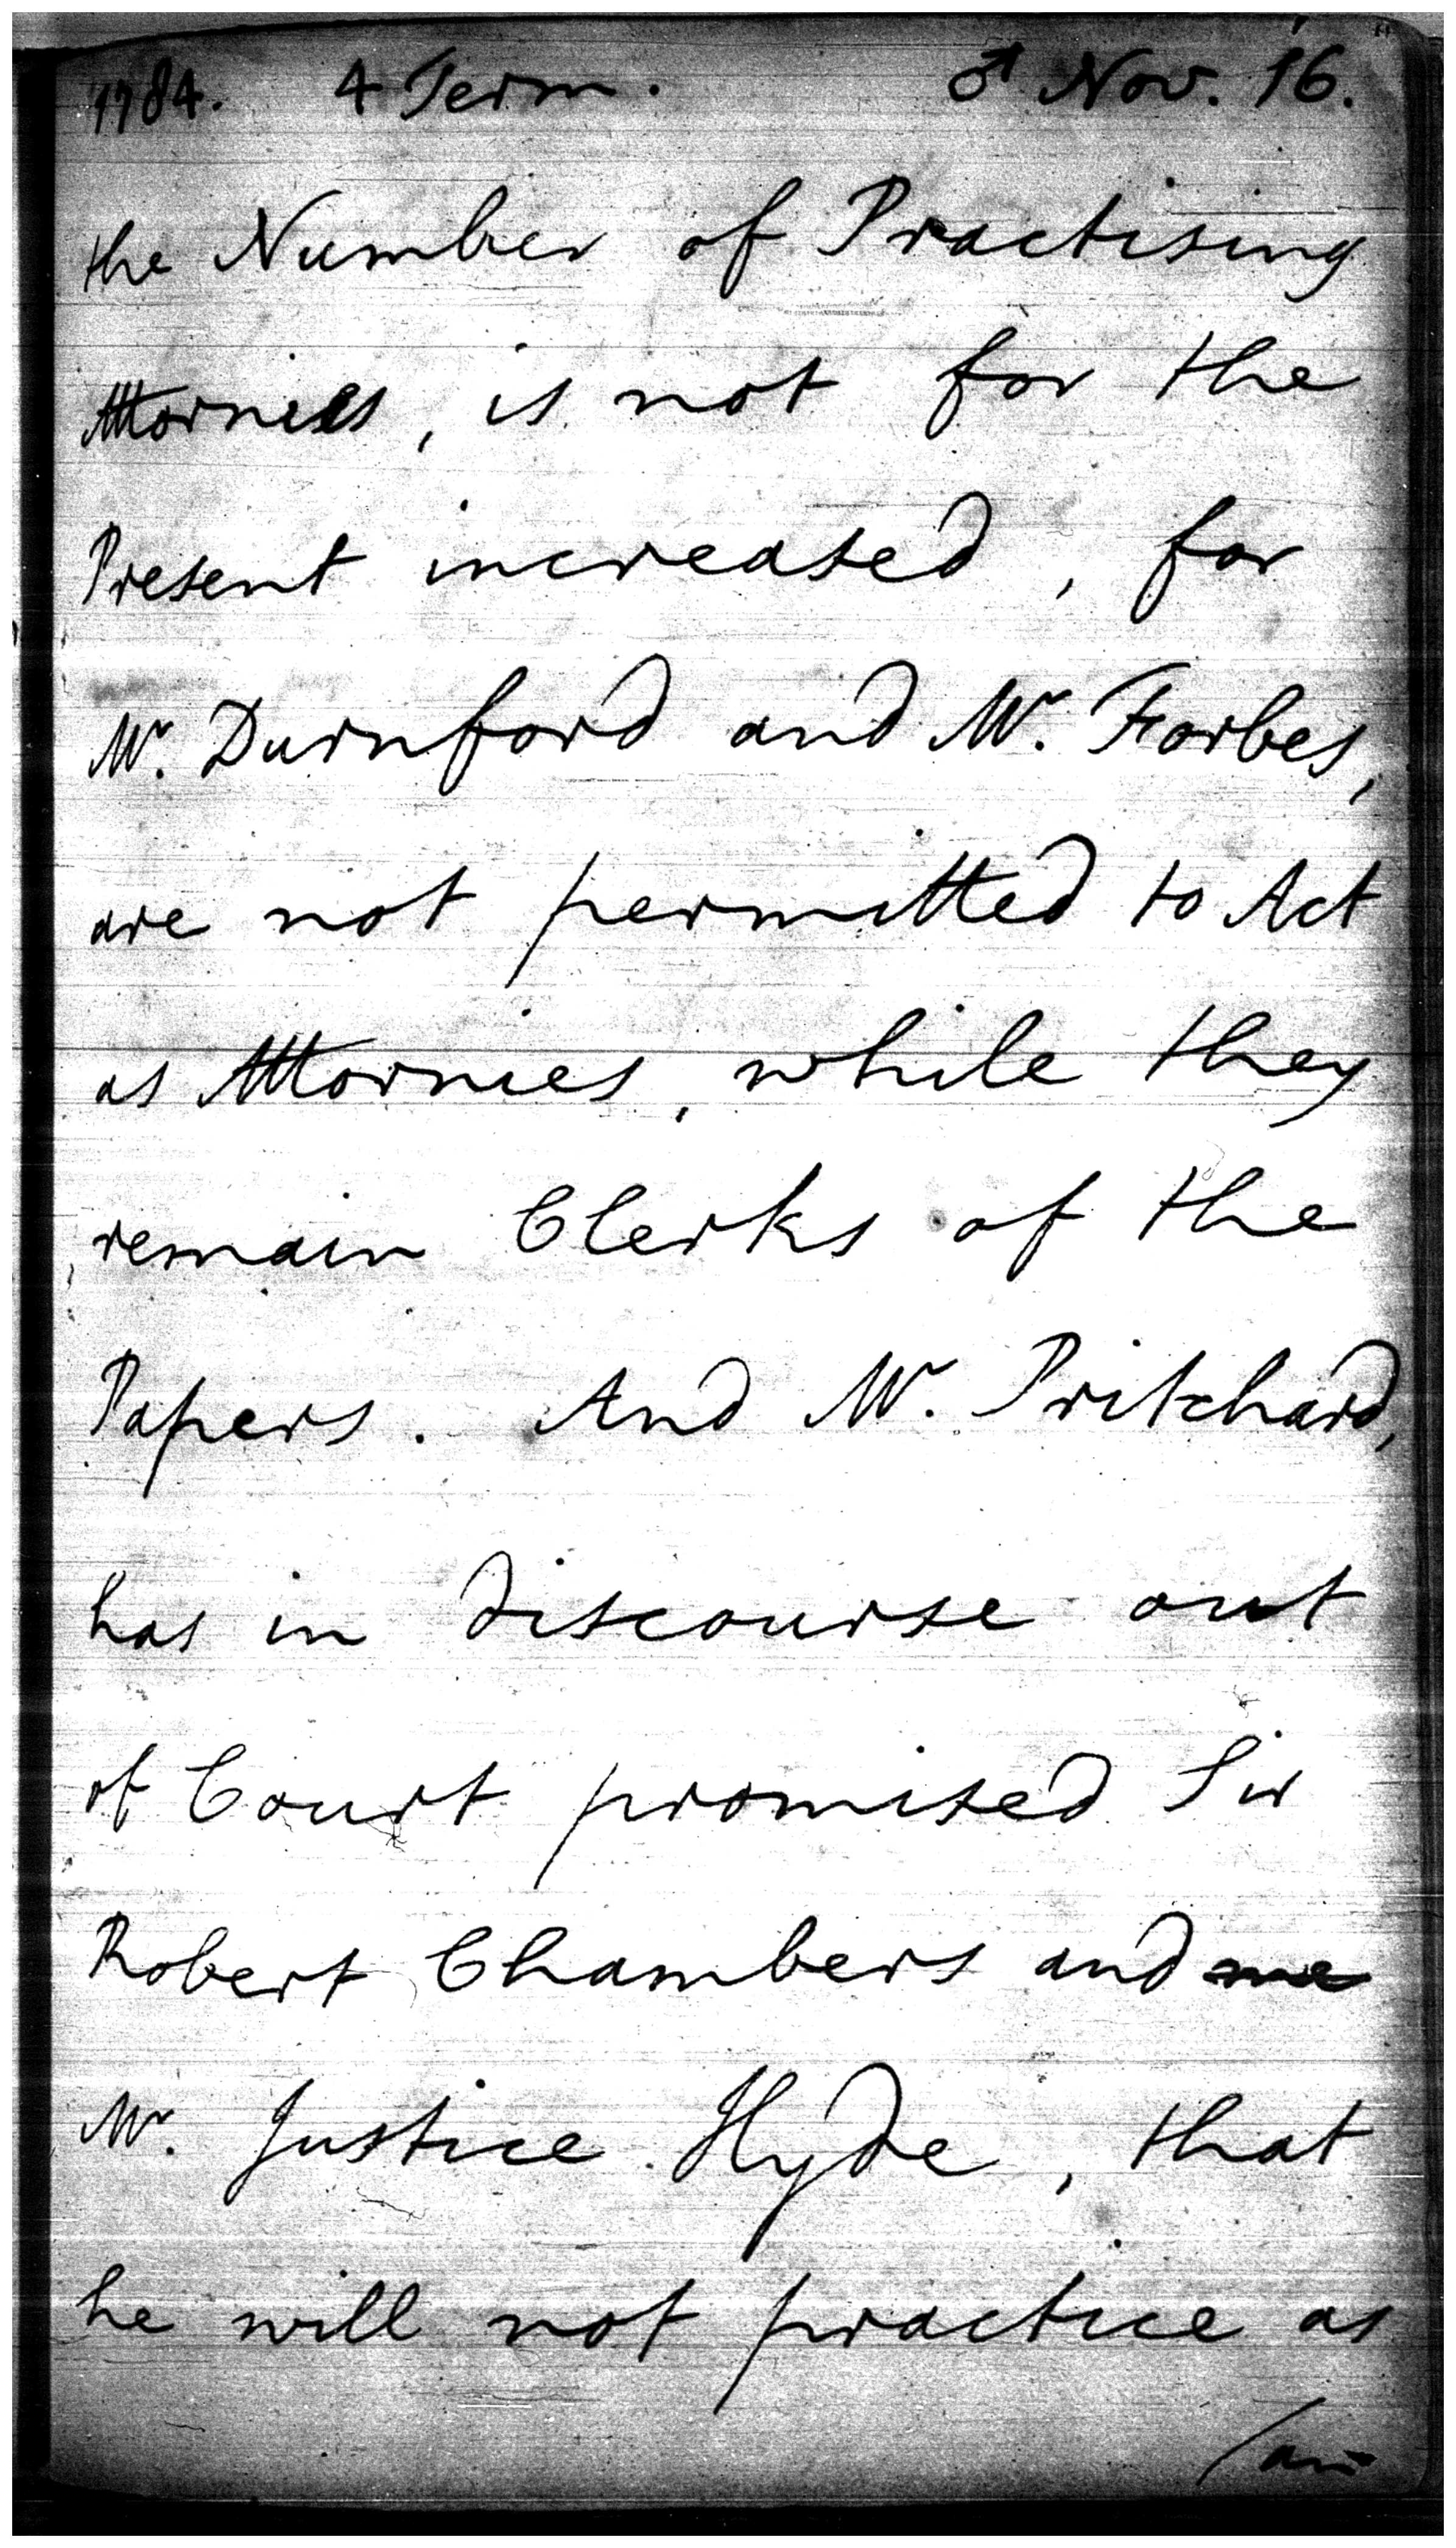 1784. 4 Term. ♂ Nov. 16.
the Number of Practising
Attornies, is not for the
Present increased, for
Mr. Durnford and Mr. Forbes,
are not permitted to Act
as Attornies, while they
remain Clerks of the
Papers. And Mr. Pritchard,
has in discourse out
of Court promised Sir
Robert Chambers and me
Mr. Justice Hyde, that
he will not practice as
/an